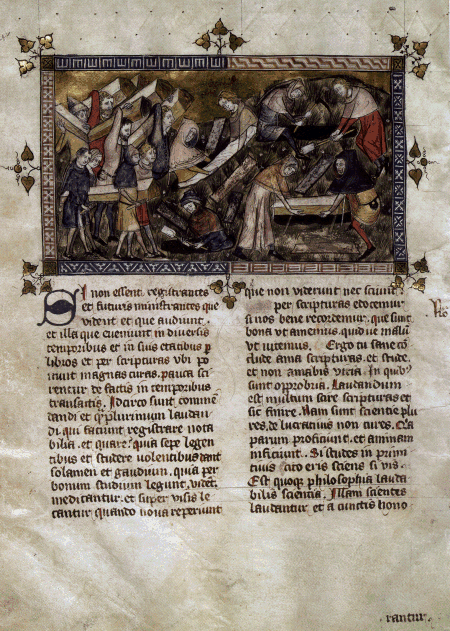 Si non essent registrantes
et futuris ministrantes que
vident et que audiunt
et illa que eveniunt in diversis
temporibus et in suis etatibus p
libros et per scripturas ubi po
nunt magnas curas pauca sci
rentur de factis in temporibus
transactis. Idcirco sunt commen
dandi et quamplurimum laudan
di qui faciunt registrare nota
bilia. et quare? quia sepe legen
tibus et studere volentibus dant
solamen et gaudium. quia per
bonum studium legunt vident
medicantur. et super visis le
tantur quando nova reperiunt
que non viderunt nec sciunt
per scripturas edocemur
si nos bene recordemur que sunt
bona ut amemus. quid ve malum
ut vitemus. Ergo tu sane co
clude ama scripturas. et stude.
et non amabis vicia. In quibus
sunt opprobria. Laudandum
est multum scire scripturas et
sic finire. Nam sunt scientie plu
res. de lucrativis non cures. Qia
parum proficiunt. et animam
inficiunt. Si studes in prim
tivis cito eris sciens si vis.
Est quoque philosophia lauda
bilis scientia. Illam scientes
laudantur et a cunctis hono
rantur.